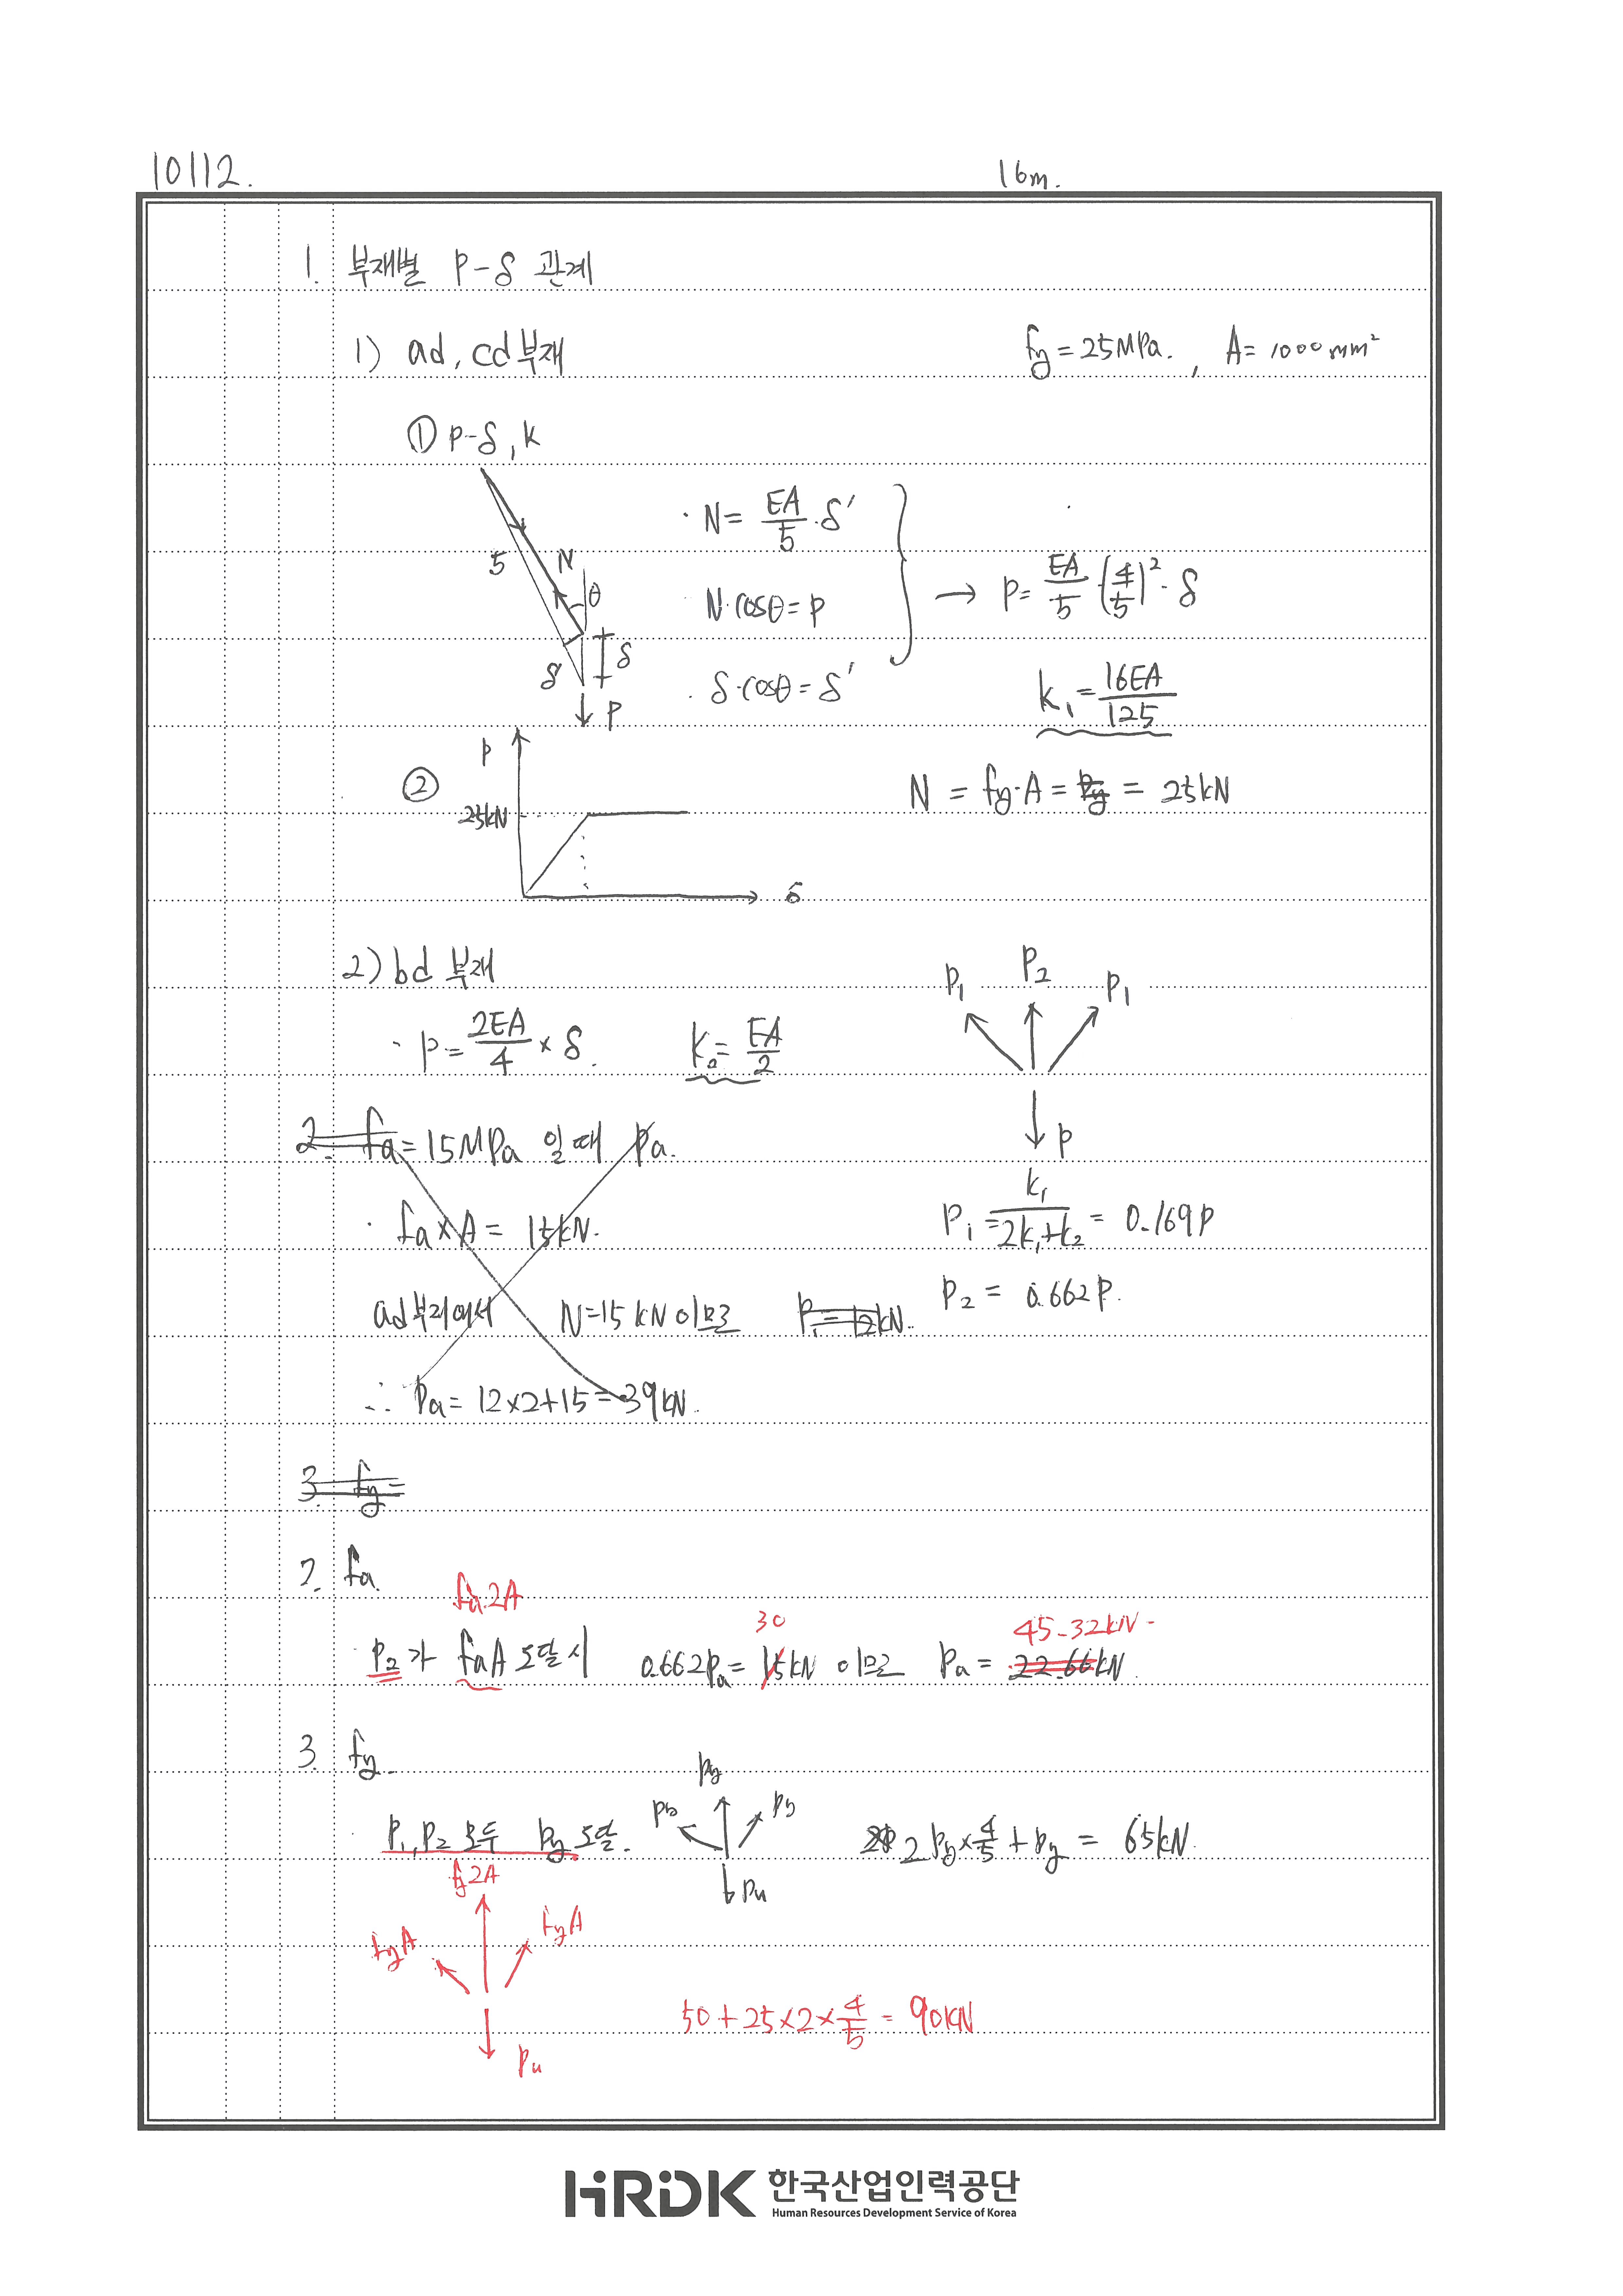 10112. 16m.
1. 부재별 P-δ 관계
1) ad, cd부재 fy = 25MPa. , A = 1000mm²
① P-δ, k
5 N θ δ δ P
· N = EA/5 · δ'
N·cosθ = P
· δ·cosθ = δ'
→ P = EA/5 (4/5)² · δ
k₁ = 16EA/125
② P 25kN δ
N = fy·A = Py = 25kN
2) bd 부재
· P = 2EA/4 × δ. k₂ = EA/2
P₁ P₂ P₁
P
2. fa = 15MPa 일때 Pa.
· fa × A = 15kN.
P₁ = k₁/2k₁+k₂ = 0.169P
P₂ = 0.662P.
ad부재에서 N=15kN 이므로 P₁ = 12kN.
∴ Pa = 12×2+15 = 39kN.
3. fy =
2. fa.
fa.2A 30 45.32kN.
· P₂가 faA 도달시 0.662Pa = 15kN 이므로 Pa = 22.66kN.
3. fy.
· P₁, P₂ 모두 Py 도달. Py Py Py Pu 2 Py×4/5 + Py = 65kN.
fy2A
fyA fyA
Pu
50 + 25×2×4/5 = 90kN
HRDK 한국산업인력공단
Human Resources Development Service of Korea